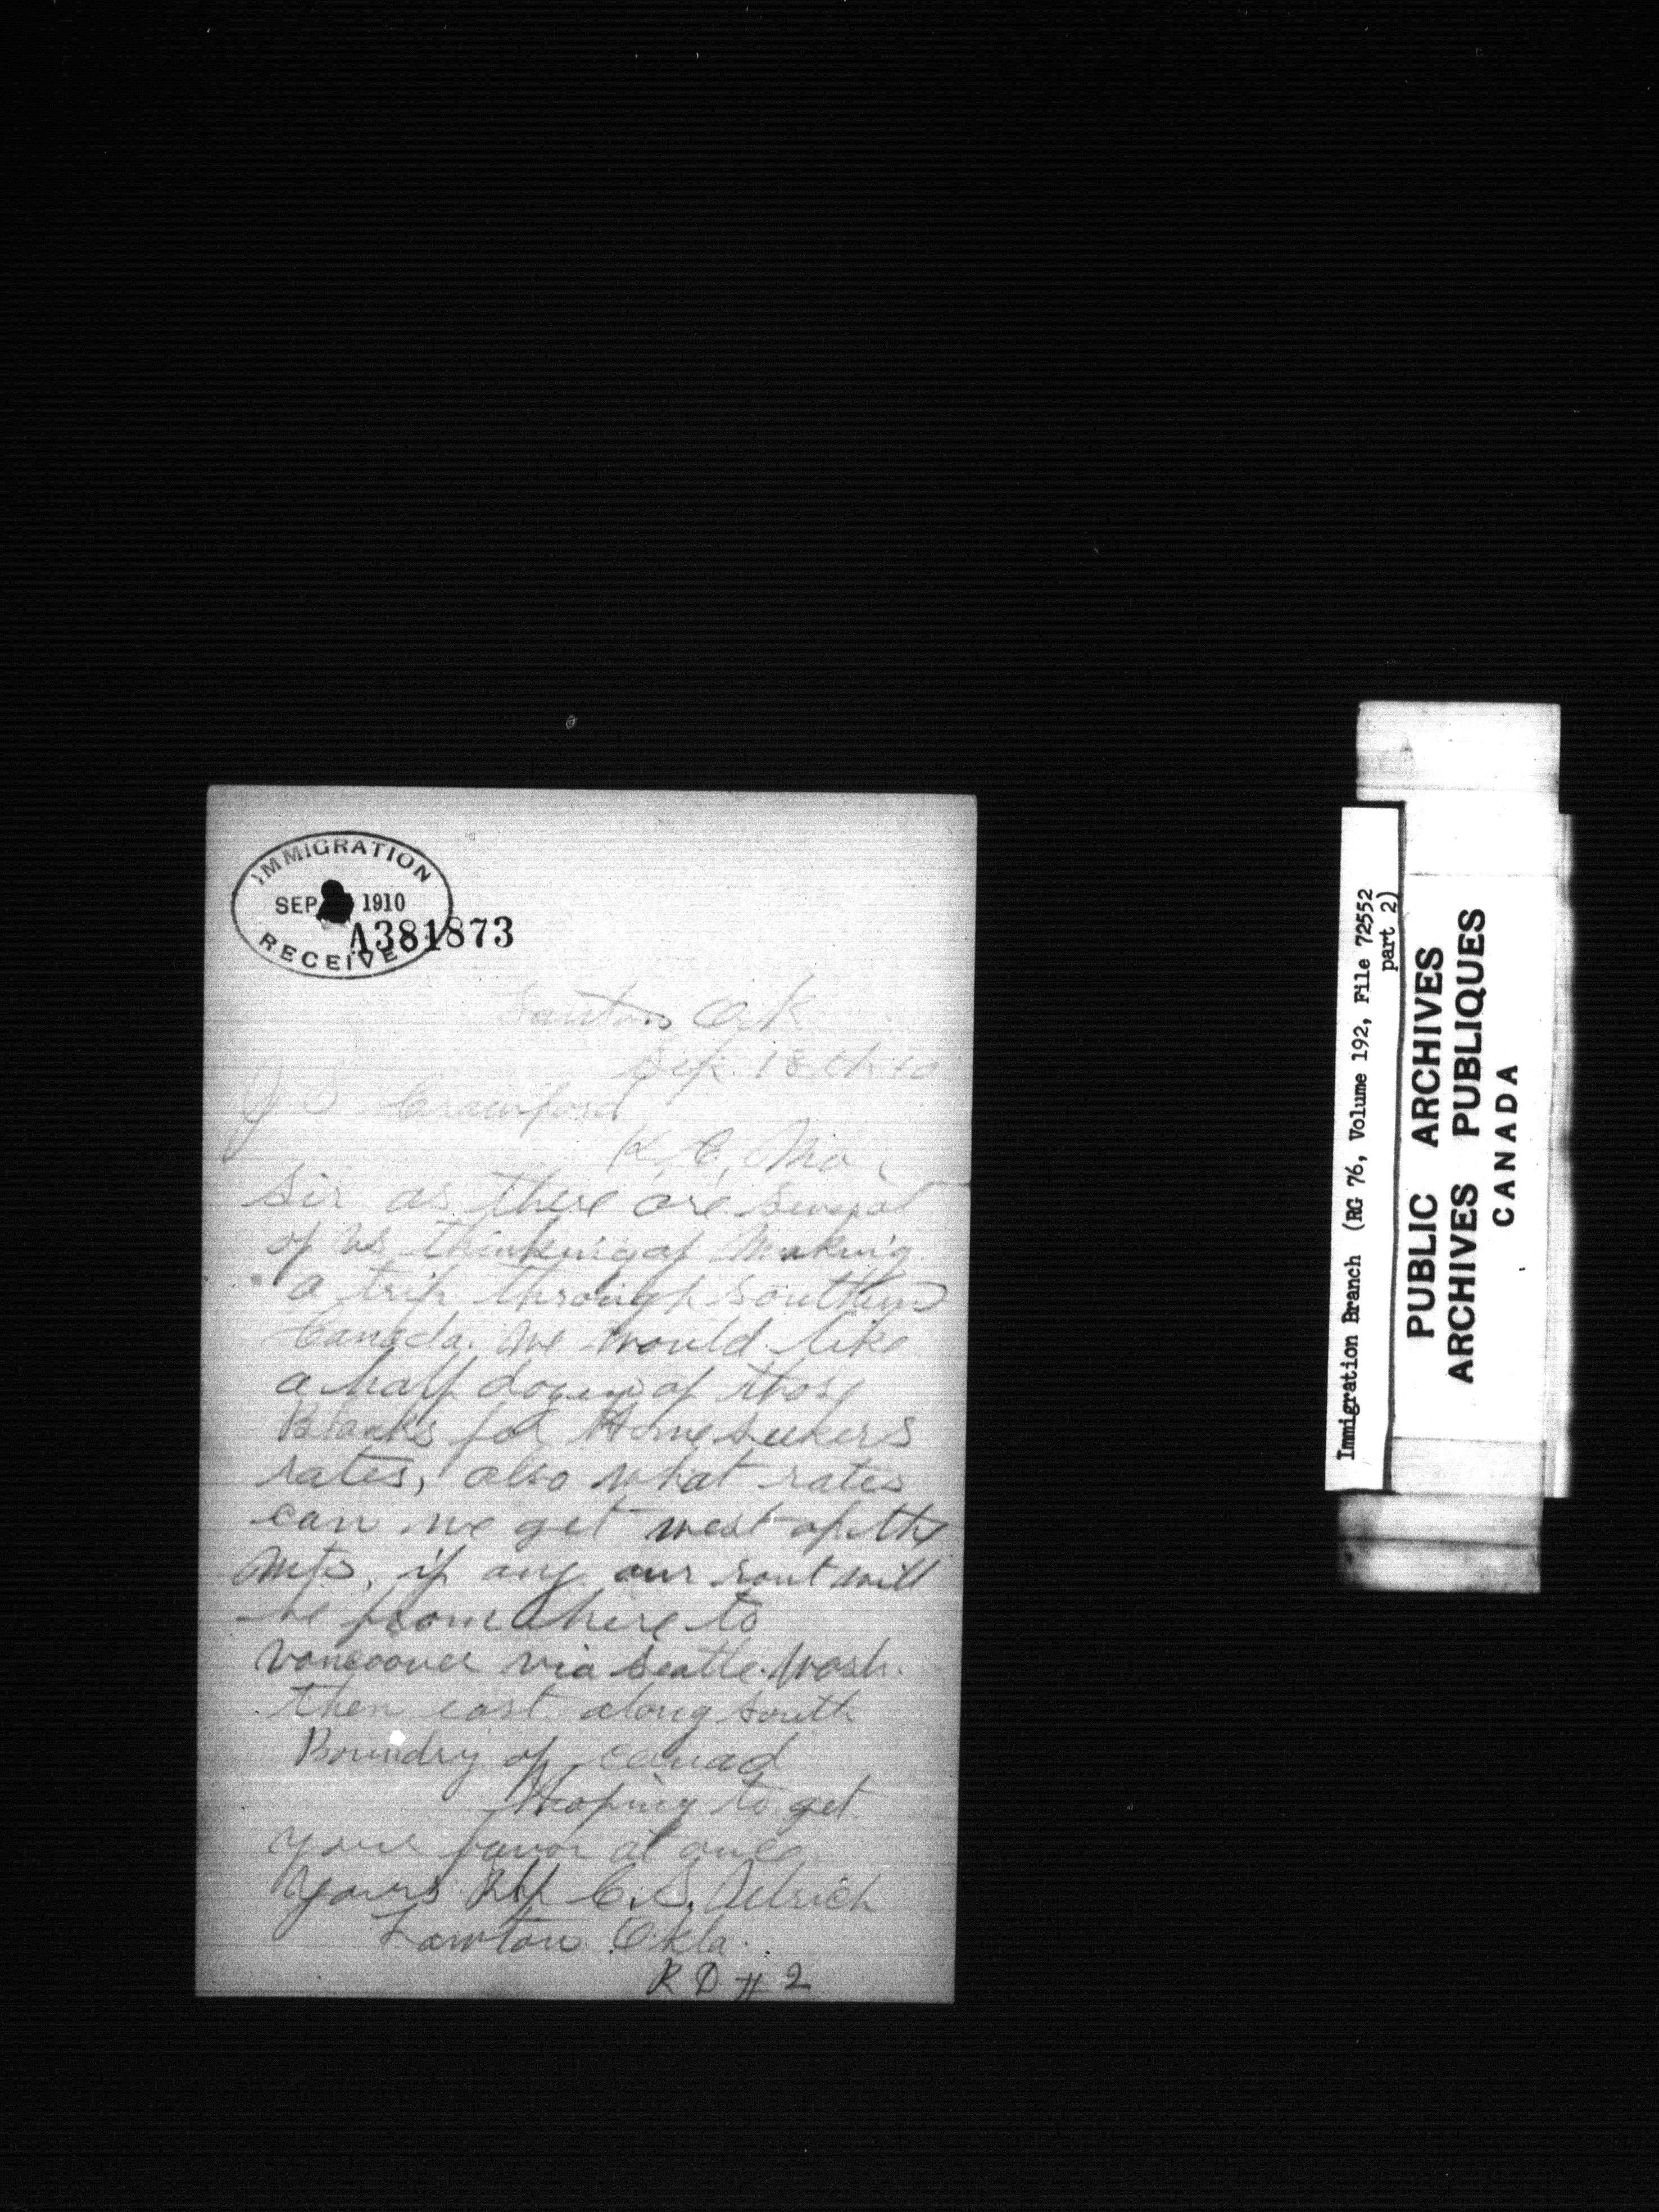 IMMIGRATION
SEP 1910
RECEIVED
A381873
Lawton Ok
Sep. 18th 10
J S Crawford
K. C. Mo.
Sir as there are several
of us thinking of Making
a trip through Southern
Canada. we would like
a half dozen of those
Blanks for Homeseekers
rates, also what rates
can we get west of the
Mts, if any our rout will
be from here to
vancoover via Seattle. Wash.
then east along south
Boundry of Canad
Hoping to get
your favor at once
Yours Rsp C. S.
Lawton Okla.
R D # 2
Immigration Branch (RG 76, Volume 192, File 72552
part 2)
PUBLIC ARCHIVES
ARCHIVES PUBLIQUES
CANADA